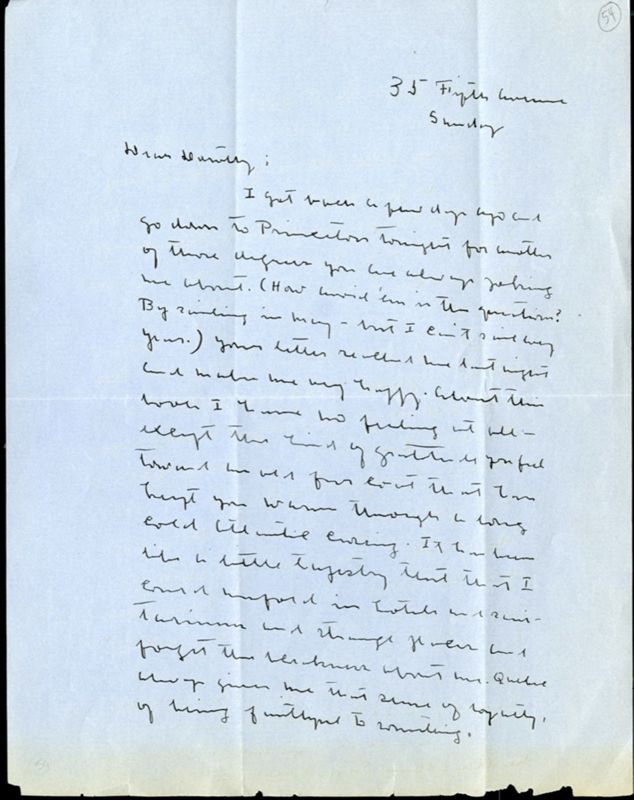 54
35 Fifth Avenue
Sunday
Dear Dorothy;
I got back a few days ago and
go down to Princeton tonight for another
of those degrees you are always joking
me about. (How avoid 'em is the question?
By sailing in May - but I can't sail every
year.) Your letter reached me last night
and makes me very happy. About this
book I have no feeling at all -
except the kind of gratitude you feel
toward an old fur coat that has
kept you warm through a long
cold Atlantic crossing. It has been
like a little tapestry tent that I
could unfold in hotels and sani-
tariums and strange places and
forget the bleakness about me. Quebec
always gives me that sense of loyalty,
of being faithful to something.